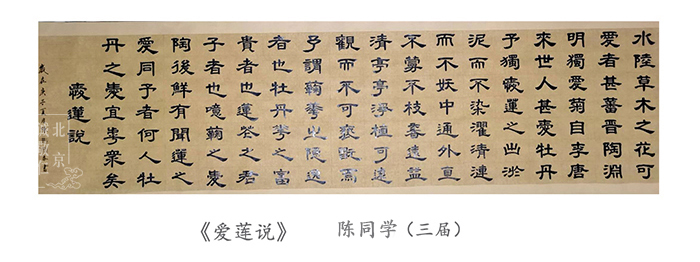 水陸草木之花可
愛者甚蕃晉陶淵
明獨愛菊自李唐
來世人甚愛牡丹
予獨愛蓮之出淤
泥而不染濯清漣
而不妖中通外直
不蔓不枝香遠益
清亭亭淨植可遠
觀而不可褻翫焉
予謂菊華之隱逸
者也牡丹華之富
貴者也蓮花之君
子者也噫菊之愛
陶後鮮有聞蓮之
愛同予者何人牡
丹之愛宜乎衆矣
愛蓮說
歲在庚子
北京
《爱莲说》 陈同学（三届）